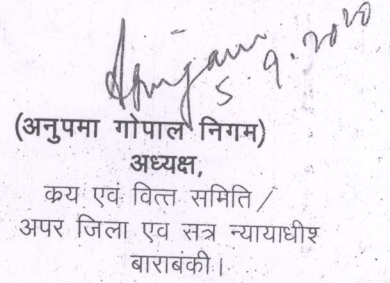 5.9.2020
(अनुपमा गोपाल निगम)
अध्यक्ष,
कय एवं वित्त समिति /
अपर जिला एव सत्र न्यायाधीश
बाराबंकी।